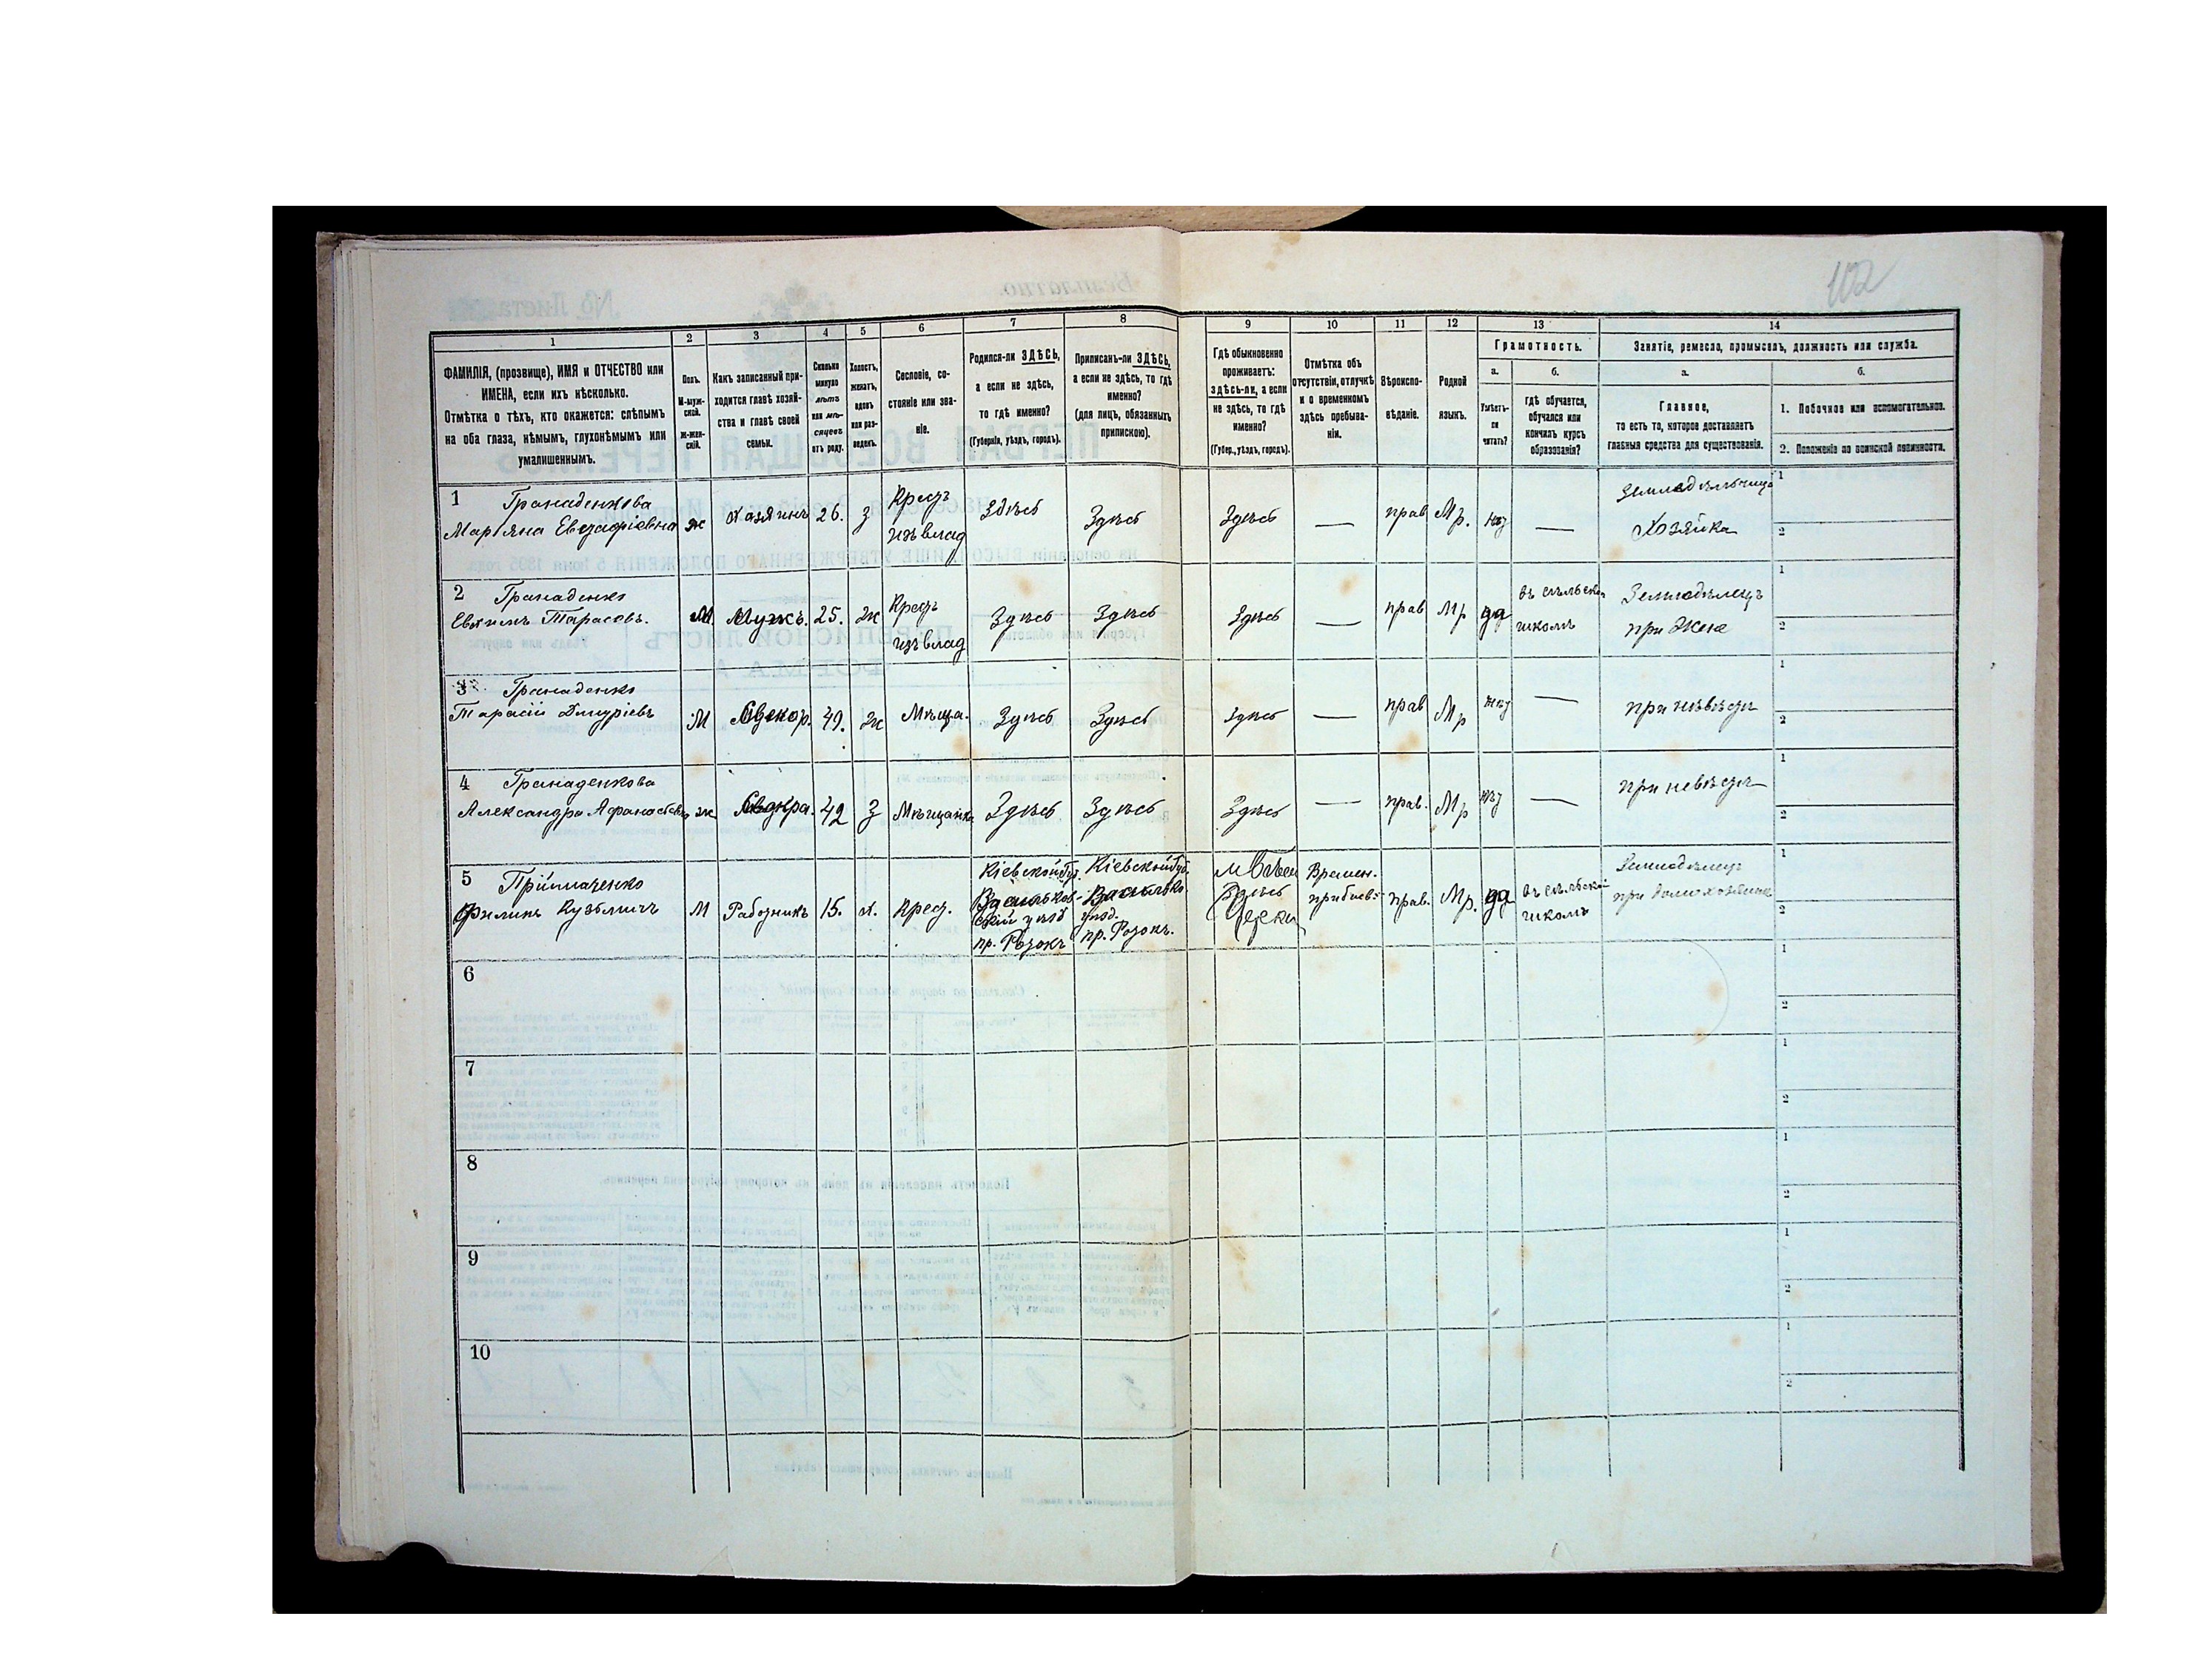 102
1 2 3 4 5 6 7 8 9 10 11 12 13 14
ФАМИЛІЯ, (прозвище), ИМЯ и ОТЧЕСТВО или
ИМЕНА, если ихъ нѣсколько.
Отмѣтка о тѣхъ, кто окажется: слѣпымъ
на оба глаза, нѣмымъ, глухонѣмымъ или
умалишеннымъ.
Полъ.
М-муж-
ской.
ж-жен-
скій.
Какъ записанный при-
ходится главѣ хозяй-
ства и главѣ своей
семьи.
Сколько
минуло
лѣтъ
или мѣ-
сяцевъ
отъ роду.
Холостъ,
женатъ,
вдовъ
или раз-
веденъ.
Сословіе, со-
стояніе или зва-
ніе.
Родился-ли ЗДѢСЬ,
а если не здѣсь,
то гдѣ именно?
(Губернія, уѣздъ, городъ).
Приписанъ-ли ЗДѢСЬ,
а если не здѣсь, то гдѣ
именно?
(для лицъ, обязанныхъ
припискою).
Гдѣ обыкновенно
проживаетъ:
здѣсь-ли, а если
не здѣсь, то гдѣ
именно?
(Губер., уѣздъ, городъ).
Отмѣтка объ
отсутствіи, отлучкѣ
и о временномъ
здѣсь пребыва-
ніи.
Вѣроиспо-
вѣданіе.
Родной
языкъ.
Грамотность.
а.
Умѣетъ-
ли
читать?
б.
гдѣ обучается,
обучался или
кончилъ курсъ
образованія?
Занятіе, ремесло, промыселъ, должность или служба.
а.
Главное,
то есть то, которое доставляетъ
главныя средства для существованія.
б.
1. Побочное или вспомогательное.
2. Положеніе по воинской повинности.
1 Гранаденкова
Марʼяна ж Хазяинъ 26. З Крест Здѣсь Здѣсь Здѣсь — прав Мр. — Хозяйка
изъ влад
1
2
2 Гранаденко
Евхимъ Тарасовъ. М Мужъ. 25. Ж Крест Здѣсь Здѣсь Здѣсь — прав Мр да въ сѣльской Земледѣлецъ
изъ влад школѣ при Жене
1
2
3 Гранаденко
Тарасій Дмитріевъ М Свекор. 49. Ж Мѣща. Здѣсь Здѣсь Здѣсь — прав Мр — при
1
2
4 Гранаденкова
Александра ж 42 З Мѣщанка Здѣсь Здѣсь Здѣсь — прав. Мр — при
1
2
5 Пріймаченко
Филипъ Кузьмичъ М Работникъ 15. х. Крест.
Кіевской Губ.
Васильков-
скій уѣзд
пр. Розокъ
Кіевской Губ.
Василько
уѣзд.
пр. Розокъ.
Времен. прибыв. прав. Мр. да въ сѣльской школѣ
Земледѣлецъ
при домохозяине
1
2
6
1
2
7
1
2
8
1
2
9
1
2
10
1
2